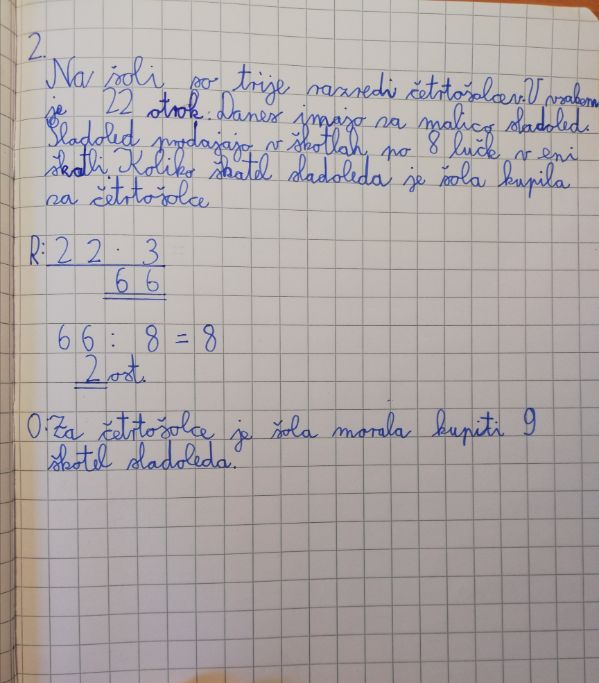 2.
Na šoli so trije razredi četrtošolcev. V vsakem
je 22 otrok. Danes imajo za malico sladoled.
Sladoled prodajajo v škotlah po 8 lučk v eni
škatli. Koliko škatel sladoleda je šola kupila
za četrtošolce
R: 22 · 3
66
66 : 8 = 8
2 ost.
O: Za četrtošolce je šola morala kupiti 9
škotel sladoleda.